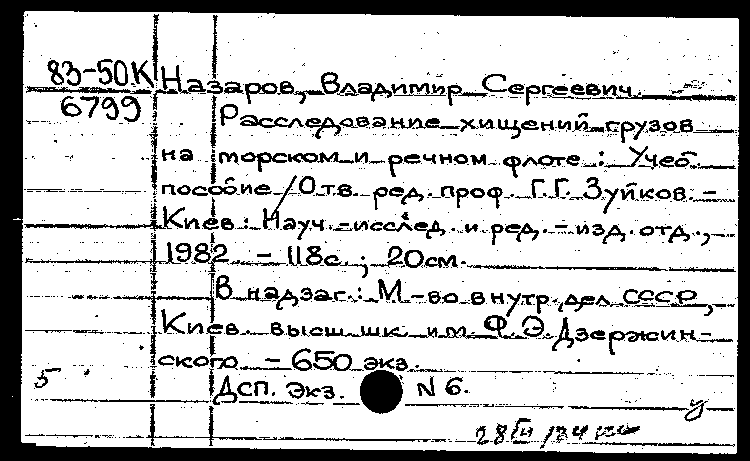 83-50К Назаров, Владимир Сергеевич.
6799
Расследование хищений грузов
на морском и речном флоте : Учеб.
пособие / Отв. ред. проф. Г.Г. Зуйков. –
Киев : Науч.-исслед. и ред. – изд. отд.,
1982 – 118с. ; 20см.
В надзаг.: М-во внутр. дел СССР,
Киев. высш. шк. им. Ф.Э. Дзержин-
ского. – 650 экз.
5 ДСП. Экз. N 6.
у